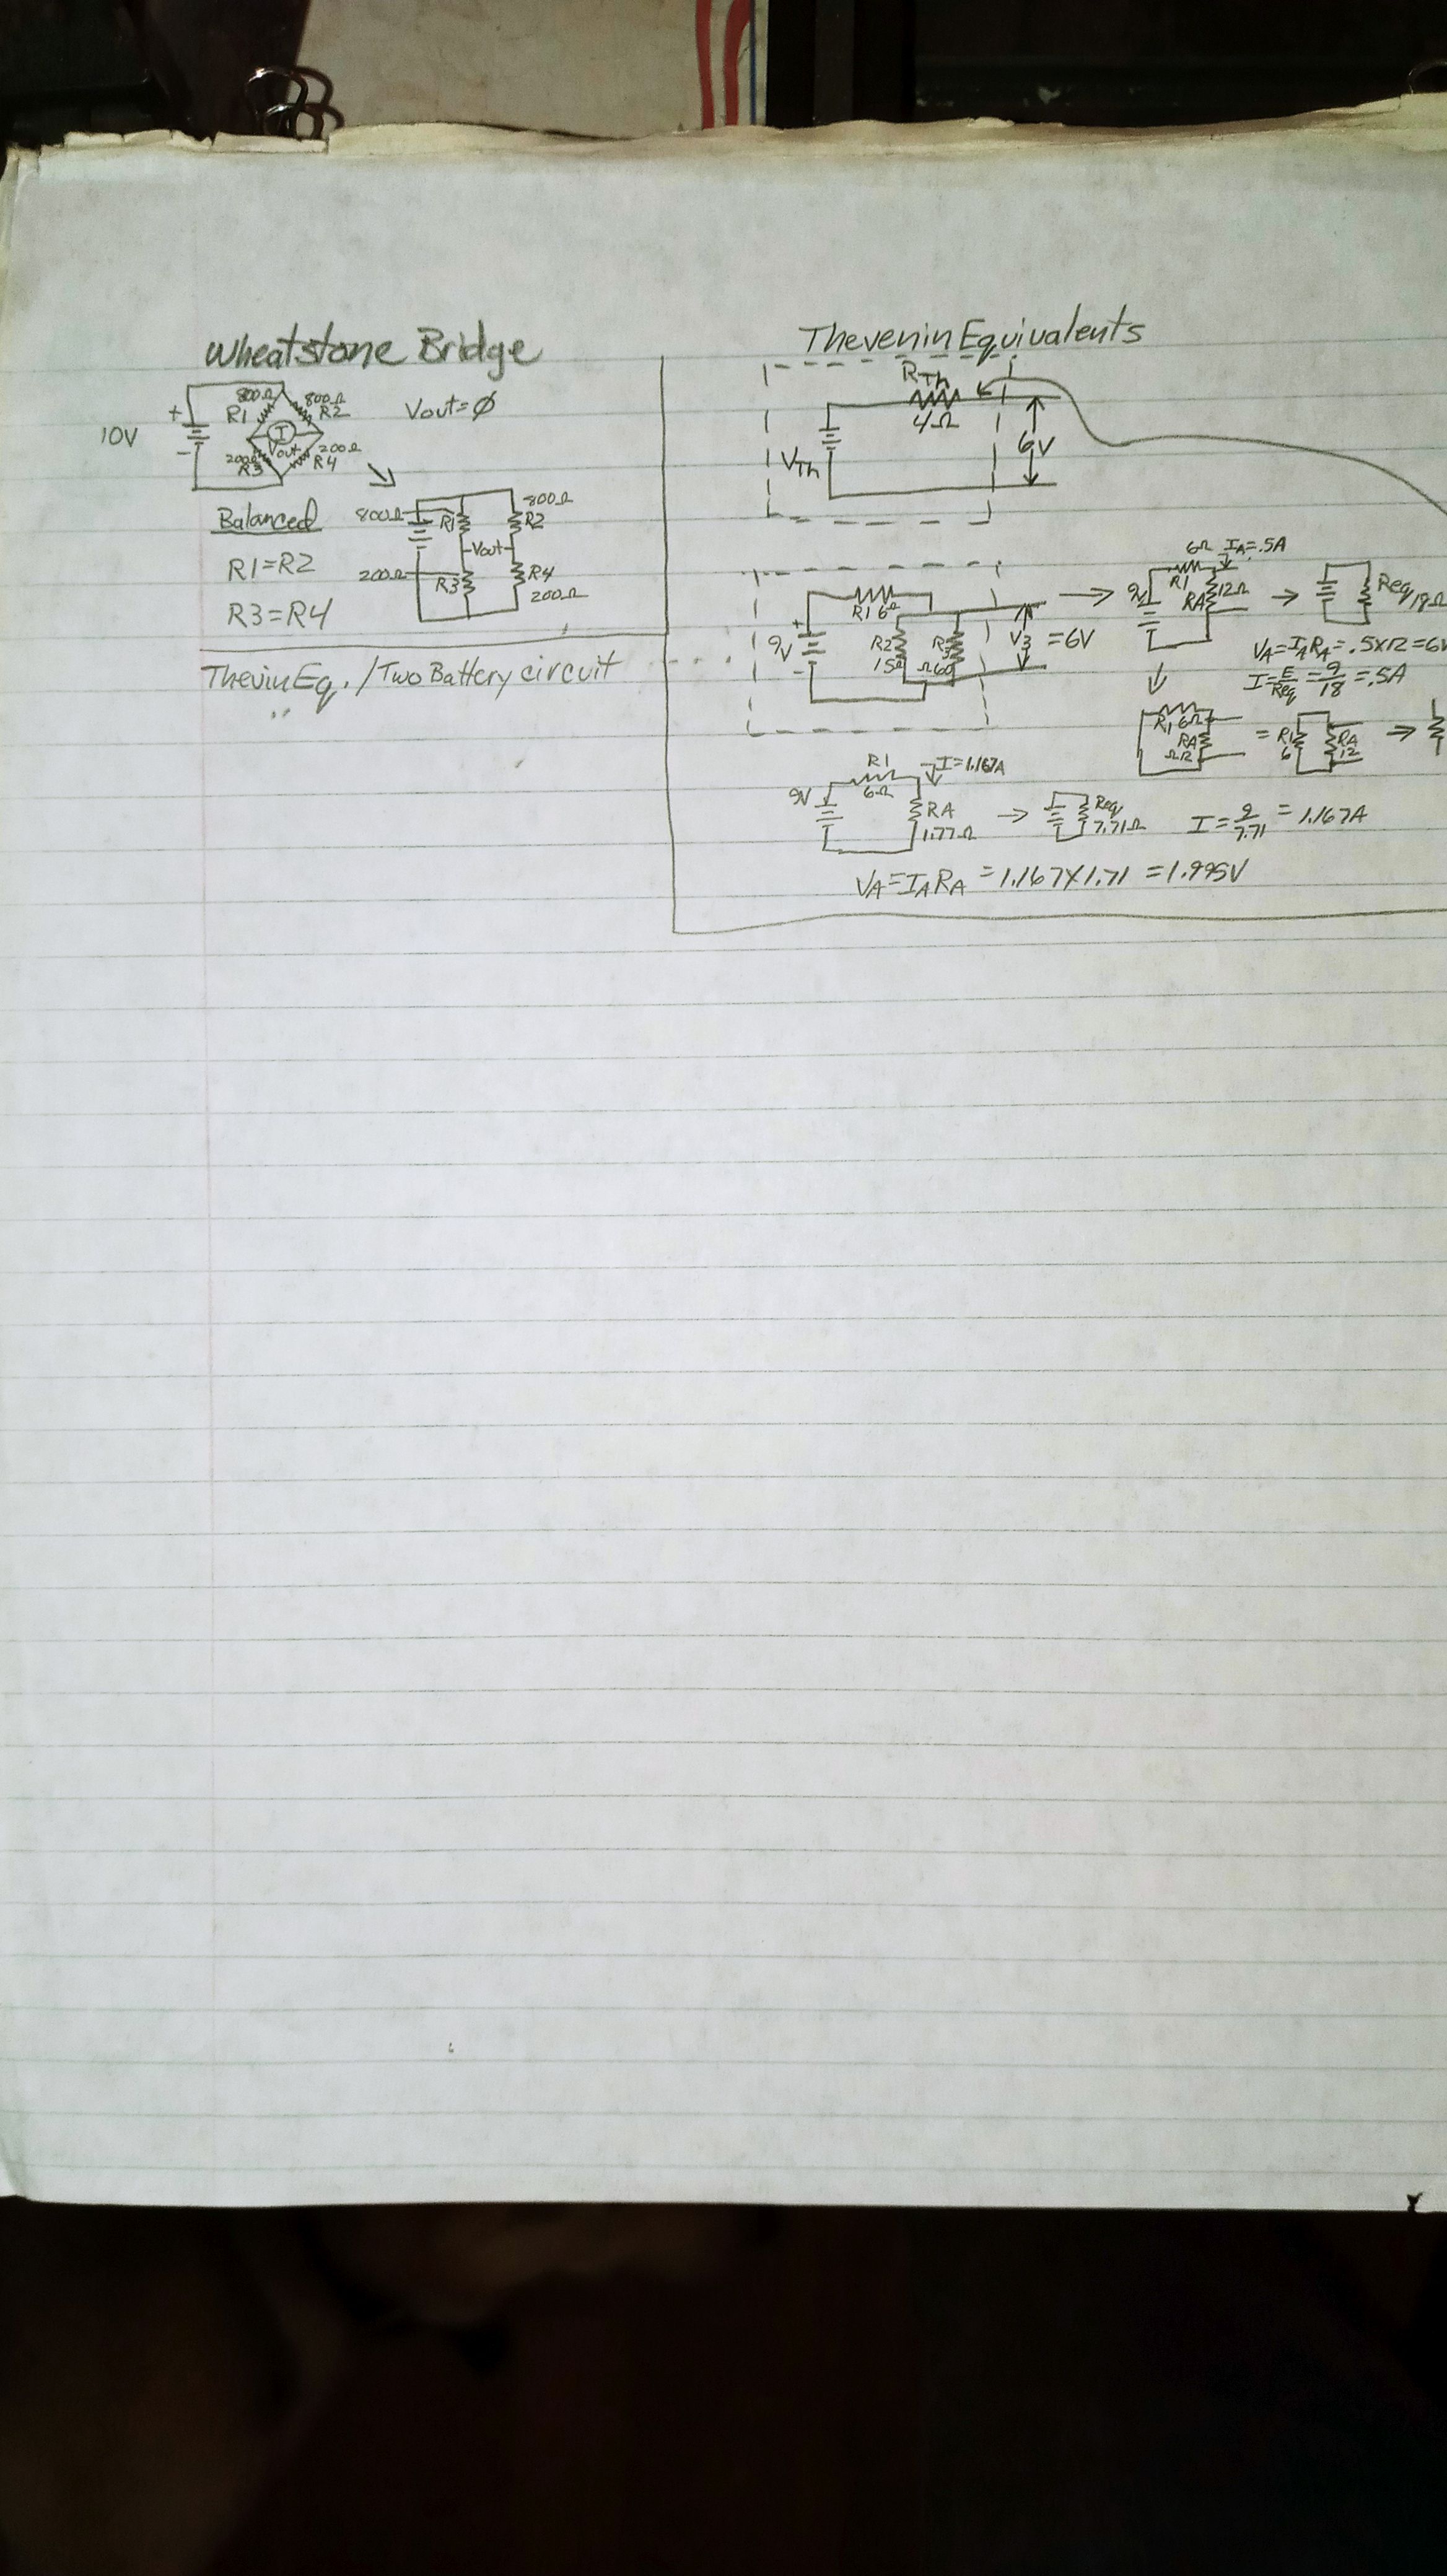 Wheatstone Bridge
10V
+
-
800Ω
R1
800Ω
R2
I
Vout
200Ω
R3
200Ω
R4
Vout=Ø
Balanced
R1=R2
R3=R4
800Ω
R1
800Ω
R2
-Vout-
200Ω
R3
R4
200Ω
Thevin Eq. / Two Battery circuit
Thevenin Equivalents
RTh
4Ω
VTh
6V
+
9V
-
R1 6Ω
R2
15Ω
R3
Ω60
V3 = 6V
→
9V
6Ω
R1
IA=.5A
12Ω
RA
→
Req 18Ω
VA=IARA=.5x12=6V
I=E/Req=9/18=.5A
R1 6Ω
RA
Ω12
=
R1
6
RA
12
→
9V
R1
6Ω
I=1.167A
RA
1.77Ω
→
Req
7.71Ω
I=9/7.71=1.167A
VA=IARA=1.167x1.71=1.995V